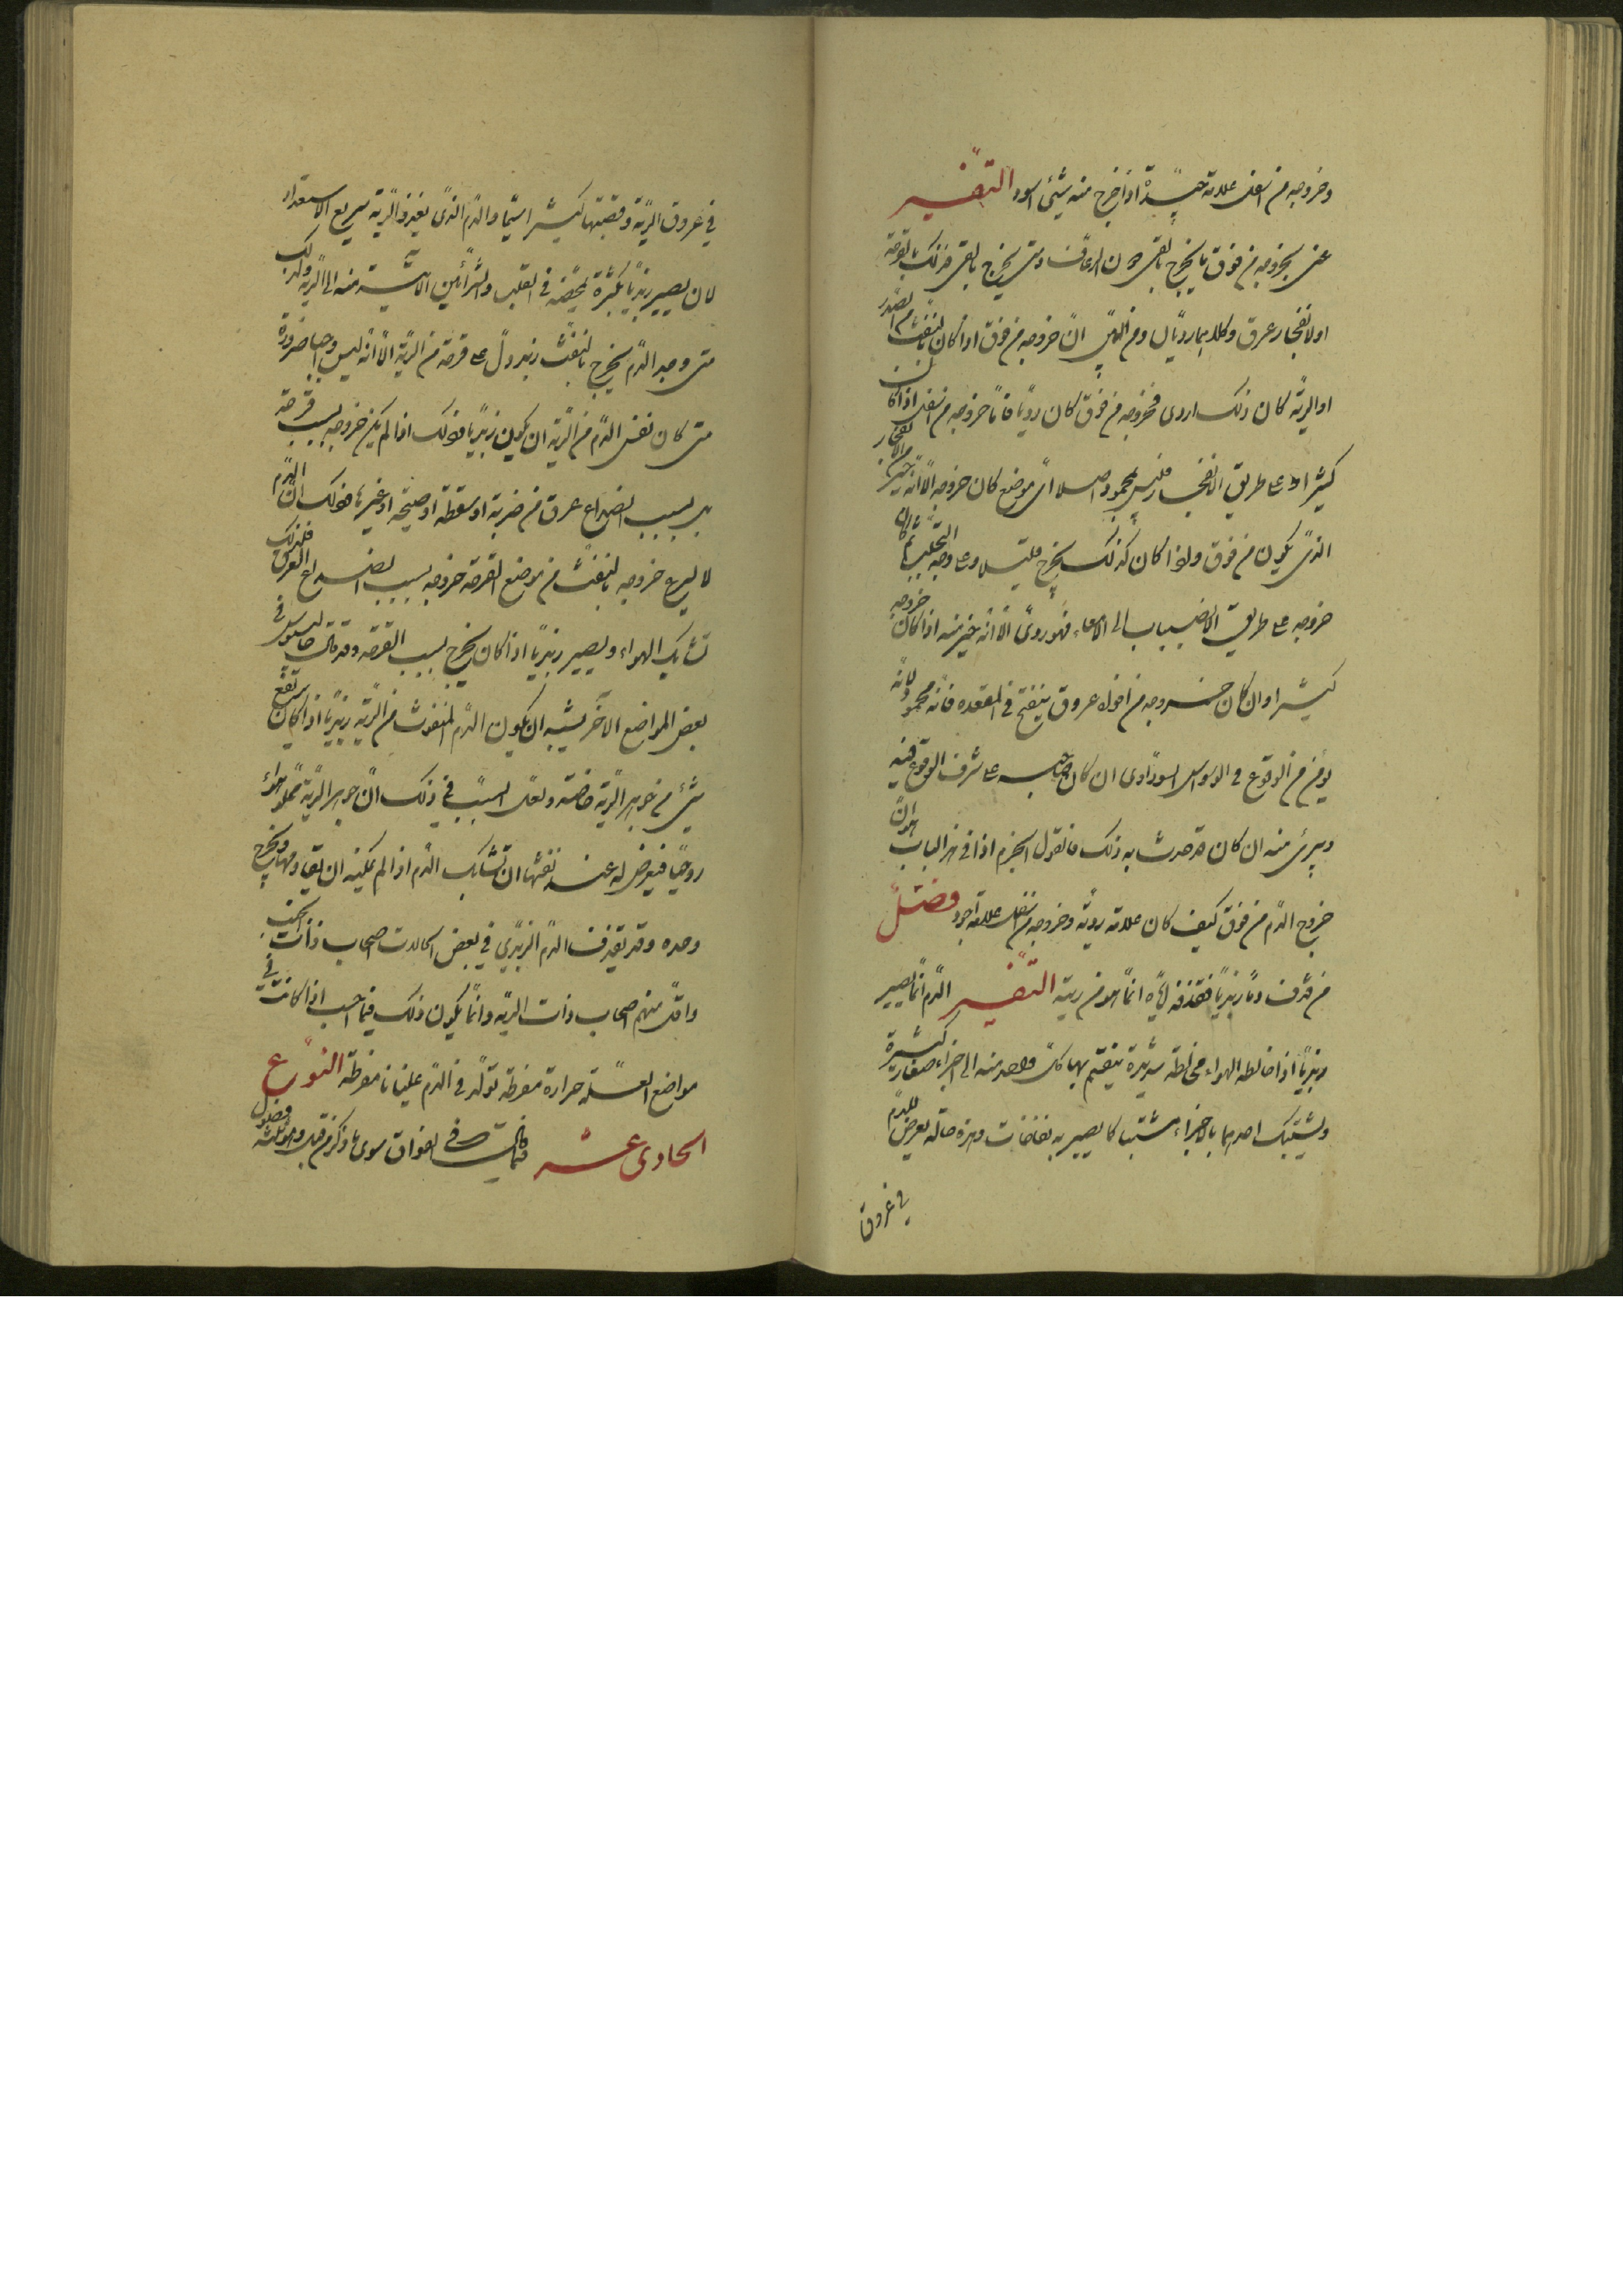 وخروجه من اسفل علامة جيدة اذا خرج منه شئ اسود التفسير
عنى بخروجه من فوق ما يخرج بالقئ دون الرعاف ومتى يخرج بالقئ فذلك بالقرحة
او لانفجار عرق وكلاهما رديّان ومن البيّن انّ خروجه من فوق اذا كان بالنفث من الصدر
او الرية كان ذلك اردى فخروجه من فوق كان رديًا فامّا خروجه من اسفل اذا كان
كثيرا وعلى طريق الانفجار فليس بمحمود اصلا اىّ موضع كان خروجه الّا انّه خير من الانفجار
الذى يكون من فوق واذا كان كذلك يخرج قليلا وعلى وجه التحلّب ثمّ كان
خروجه على طريق الانصباب الى الامعاء فهو ردىّ الّا انّه خير منه اذا كان خروجه
كثيرا وان كان خروجه من افواه عروق ينفتح فى المقعدة فانّه محمود لانّه
يؤمن من الوقوع فى الوسواس السوداوى ان كان صاحبه على شرف الوقوع فيه
ويبرئ منه ان كان قد حدث به ذلك فالقول الجزم اذا فى هذا الباب هو انّ
خروج الدّم من فوق كيف كان علامة ردية وخروجه من اسفل علامة اجود فصل
من قذف دمًا زبديًا فقذفه ايّاه انّما هو من ريته التفسير الدّم انّما يصير
زبديًا اذا خالطه الهواء مخالطة شديدة ينقسم بها كلّ واحد منه الى اجزاء صغار كثيرة
ويشتبك احدهما بالاجزاء مشتبكا يصير به نفاخات وهذه حالة يعرض للدم
فى عروق
فى عروق الرّية وقصبتها كثيرا سيّما والدّم الذى يغذو الرّية سريع الاستعداد
لان يصير زبديًا لكثرة تمخّضه فى القلب والشرائين الآتية منه الى الرّية ولذلك
متى وجد الدّم يخرج بالنفث زبد دلّ على قرحة من الرّية الّا انّه ليس واجبا ضرورة
متى كان نفث الدّم من الرّية ان يكون زبديًا فذلك اذا لم يكن خروجه بسبب قرحة
بل بسبب انصداع عرق من ضربة او سقطة او صيحة او غيرها فذلك انّ الدّم
لا يسرع خروجه بالنفث من موضع القرحة خروجه بسبب انصداع العرق فلذلك
تشابك الهواء ويصير زبديًا اذا كان يخرج بسبب القرحة وقد قال جالينوس فى
بعض المواضع الآخر يشبه ان يكون الدّم المنفوث من الرّية زبديًا اذا كان نفع
شئ من جوهر الرّية خاصّة ولعلّ السبب فى ذلك انّ جوهر الرّية مملو هواء
روحيًا فيعرض له عند نفثها ان تشابك الدّم اذا لم يمكنه ان يبقى دمها ويخرج
وحده وقد يقذف الدّم الزبدى فى بعض الحالات اصحاب ذات الجنب
واقلّ منهم اصحاب ذات الرّية وانّما يكون ذلك فيما احسب اذا كانت فى
مواضع العلّة حرارة مفرطة تولّد فى الدّم غليانا مفرطة النوع
الحادى عشر فيما فى الفواق سوى ما ذكر من قبل وهو ثلثة فصول